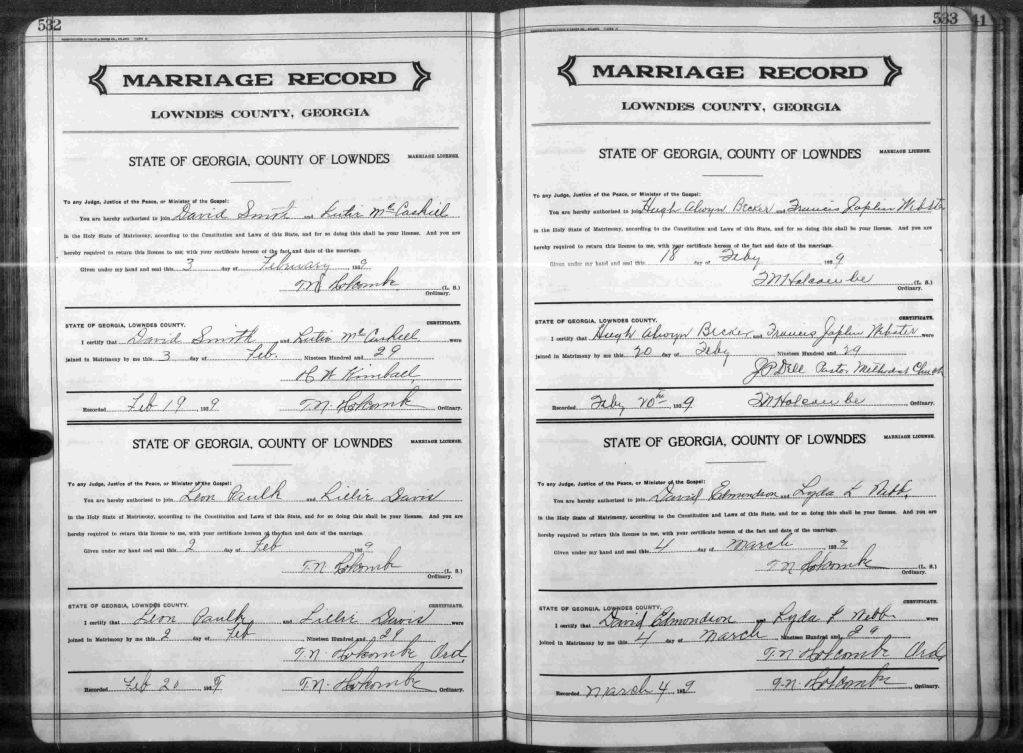 532
MARRIAGE RECORD
LOWNDES COUNTY, GEORGIA
STATE OF GEORGIA, COUNTY OF LOWNDES MARRIAGE LICENSE.
To any Judge, Justice of the Peace, or Minister of the Gospel:
You are hereby authorized to join David Smith and Lutir McCaskill
in the Holy State of Matrimony, according to the Constitution and Laws of this State, and for so doing this shall be your license. And you are
hereby required to return this license to me, with your certificate hereon of the fact and date of the marriage.
Given under my hand and seal this 3 day of February 1929
T.N. Holcomb (L. S.)
Ordinary.
STATE OF GEORGIA, LOWNDES COUNTY. CERTIFICATE.
I certify that David Smith and Lutir McCaskill were
joined in Matrimony by me this 3 day of Feb. Nineteen Hundred and 29
H W Kimball
Recorded Feb 19 1929 T.N. Holcomb Ordinary.
STATE OF GEORGIA, COUNTY OF LOWNDES MARRIAGE LICENSE.
To any Judge, Justice of the Peace, or Minister of the Gospel:
You are hereby authorized to join Leon Paulk and Lillie Davis
in the Holy State of Matrimony, according to the Constitution and Laws of this State, and for so doing this shall be your license. And you are
hereby required to return this license to me, with your certificate hereon of the fact and date of the marriage.
Given under my hand and seal this 2 day of Feb 1929
T.N. Holcomb (L. S.)
Ordinary.
STATE OF GEORGIA, LOWNDES COUNTY. CERTIFICATE.
I certify that Leon Paulk and Lillie Davis were
joined in Matrimony by me this 2 day of Feb Nineteen Hundred and 29
T.N. Holcomb Ord.
Recorded Feb 20 1929 T.N. Holcomb Ordinary.
533 41
MARRIAGE RECORD
LOWNDES COUNTY, GEORGIA
STATE OF GEORGIA, COUNTY OF LOWNDES MARRIAGE LICENSE.
To any Judge, Justice of the Peace, or Minister of the Gospel:
You are hereby authorized to join Hugh Alwyn Becker and Francis Joplin Webster
in the Holy State of Matrimony, according to the Constitution and Laws of this State, and for so doing this shall be your license. And you are
hereby required to return this license to me, with your certificate hereon of the fact and date of the marriage.
Given under my hand and seal this 18 day of Feby 1929
T M Holcombe (L. S.)
Ordinary.
STATE OF GEORGIA, LOWNDES COUNTY. CERTIFICATE.
I certify that Hugh Alwyn Becker and Francis Joplin Webster were
joined in Matrimony by me this 20 day of Feby Nineteen Hundred and 29
J P Dell Pastor Methodist Church
Recorded Feby 20th 1929 T M Holcombe Ordinary.
STATE OF GEORGIA, COUNTY OF LOWNDES MARRIAGE LICENSE.
To any Judge, Justice of the Peace, or Minister of the Gospel:
You are hereby authorized to join David Edmondson and Lyda L Webb
in the Holy State of Matrimony, according to the Constitution and Laws of this State, and for so doing this shall be your license. And you are
hereby required to return this license to me, with your certificate hereon of the fact and date of the marriage.
Given under my hand and seal this 4 day of March 1929
T.N. Holcomb (L. S.)
Ordinary.
STATE OF GEORGIA, LOWNDES COUNTY. CERTIFICATE.
I certify that David Edmondson and Lyda L Webb were
joined in Matrimony by me this 4 day of March Nineteen Hundred and 29
T.N. Holcomb Ord.
Recorded March 4 1929 T.N. Holcomb Ordinary.